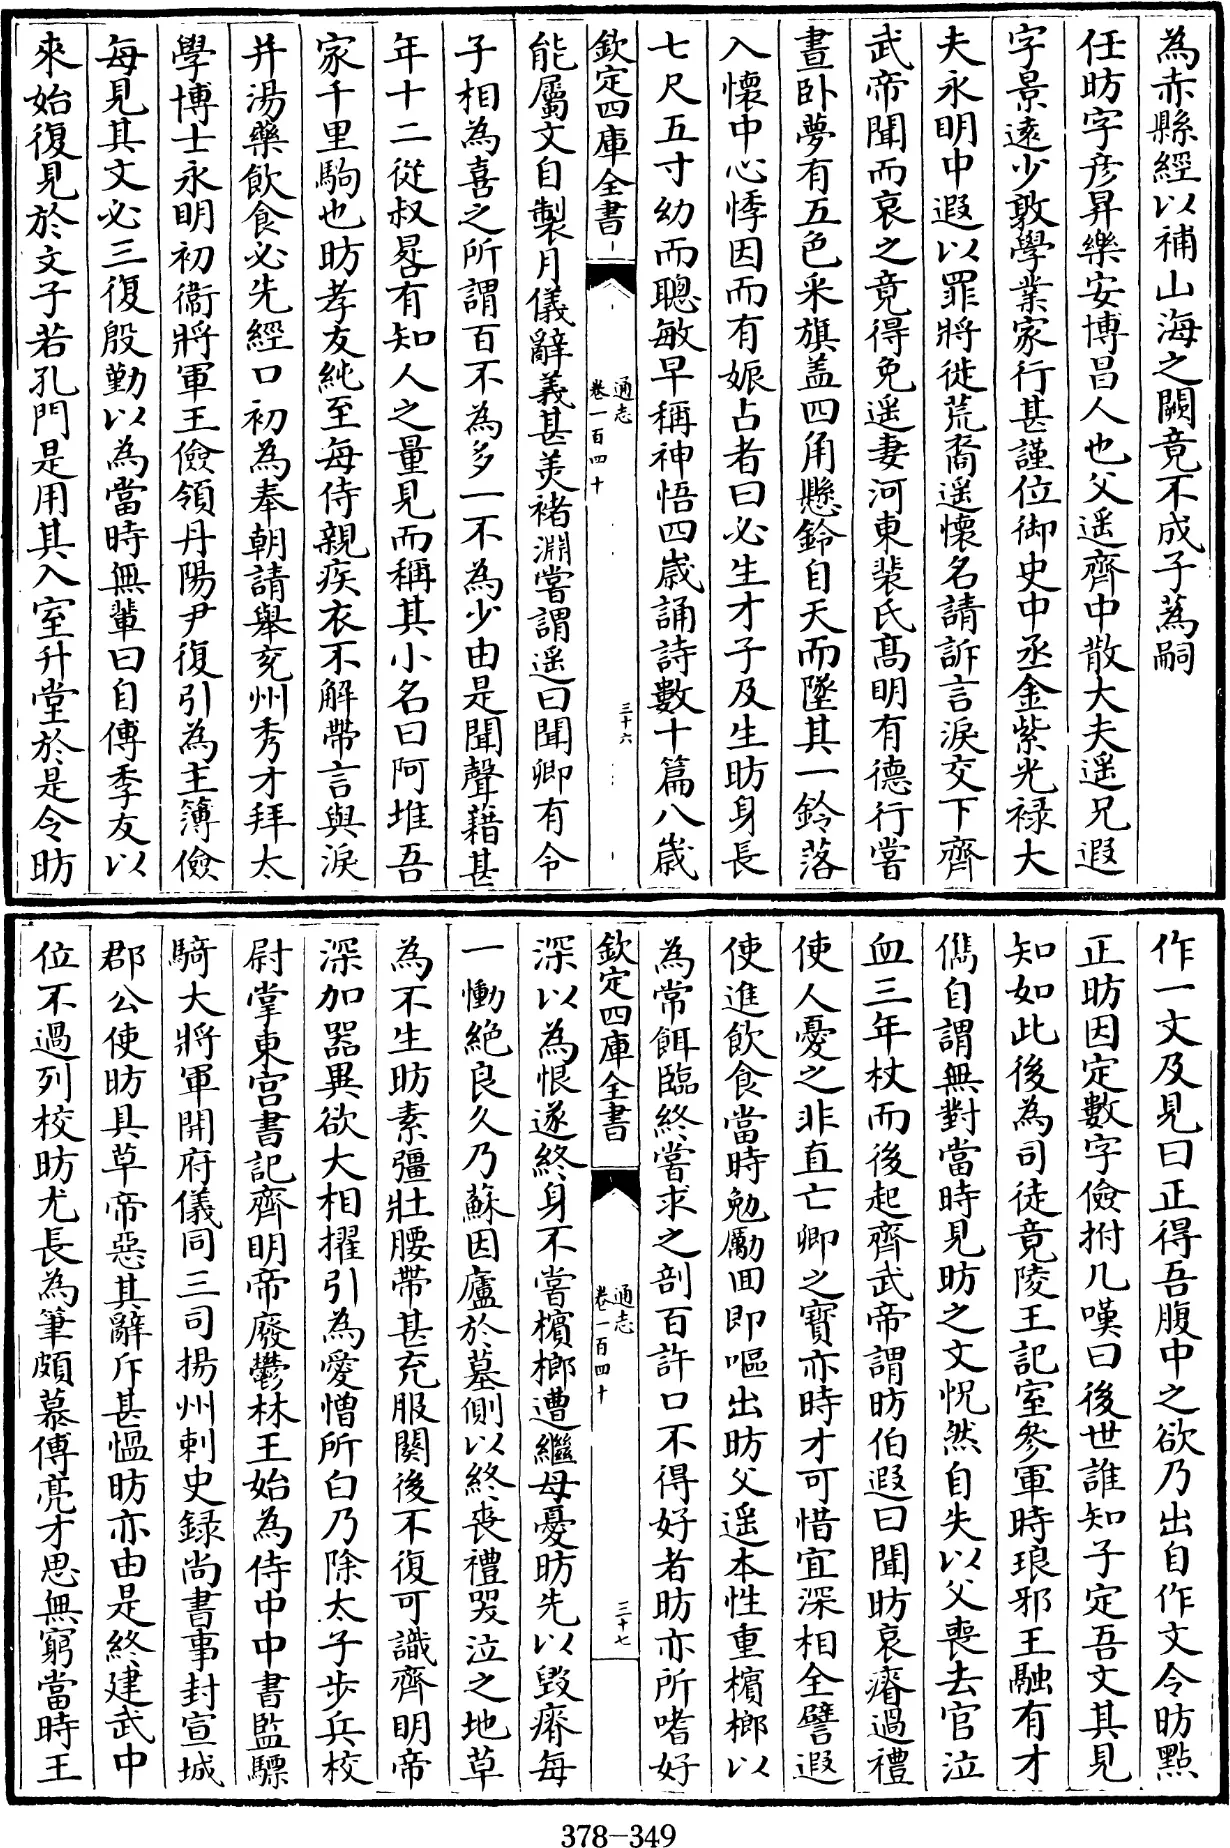 為赤縣經以補山海之闕竟不成子蔿嗣
任昉字彥昇樂安博昌人也父遥齊中散大夫遥兄遐
字景遠少敦學業家行甚謹位御史中丞金紫光禄大
夫永明中遐以罪將徙荒裔遥懷名請訴言淚交下齊
武帝聞而哀之竟得免遥妻河東裴氏髙明有德行嘗
晝卧夢有五色采旗盖四角懸鈴自天而墜其一鈴落
入懷中心悸因而有娠占者曰必生才子及生昉身長
七尺五寸幼而聰敏早稱神悟四歲誦詩數十篇八歲
欽定四庫全書
通志
卷一百四十
三十六
能屬文自製月儀辭義甚美褚淵嘗謂遥曰聞卿有令
子相為喜之所謂百不為多一不為少由是聞聲藉甚
年十二從叔晷有知人之量見而稱其小名曰阿堆吾
家千里駒也昉孝友純至每侍親疾衣不解帶言與淚
并湯藥飲食必先經口初為奉朝請舉兖州秀才拜太
學博士永明初衞將軍王儉領丹陽尹復引為主簿儉
每見其文必三復殷勤以為當時無輩曰自傅季友以
來始復見於文子若孔門是用其入室升堂於是令昉
作一文及見曰正得吾腹中之欲乃出自作文令昉點
正昉因定數字儉拊几嘆曰後世誰知子定吾文其見
知如此後為司徒竟陵王記室參軍時琅邪王融有才
儁自謂無對當時見昉之文怳然自失以父喪去官泣
血三年杖而後起齊武帝謂昉伯遐曰聞昉哀瘠過禮
使人憂之非直亡卿之寳亦時才可惜宜深相全譬遐
使進飲食當時勉勵囬即嘔出昉父遥本性重檳榔以
為常餌臨終嘗求之剖百許口不得好者昉亦所嗜好
欽定四庫全書
通志
卷一百四十
三十七
深以為恨遂終身不嘗檳榔遭繼母憂昉先以毁瘠每
一慟絶良久乃蘇因廬於墓側以終喪禮哭泣之地草
為不生昉素彊壯腰帶甚充服闋後不復可識齊明帝
深加器異欲大相擢引為愛憎所白乃除太子步兵校
尉掌東宫書記齊明帝廢鬱林王始為侍中中書監驃
騎大將軍開府儀同三司揚州刺史録尚書事封宣城
郡公使昉具草帝惡其辭斥甚愠昉亦由是終建武中
位不過列校昉尤長為筆頗慕傅亮才思無窮當時王
378-349